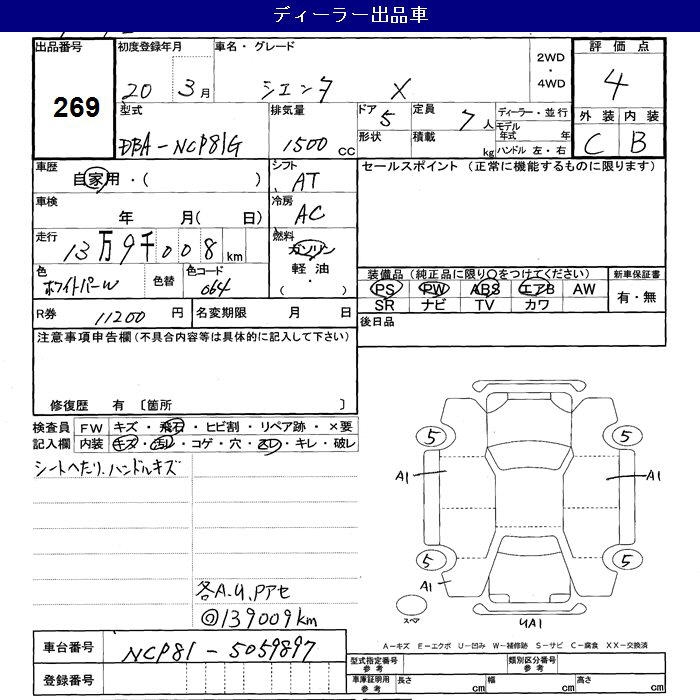 ディーラー出品車
出品番号 初度登録年月 車名・グレード 2WD ・ 4WD 評価点
269 20 3月 シエンタ X 4
型式 排気量 ドア 5 定員 7人 ディーラー・並行 外装 内装
DBA-NCP81G 1500cc 形状 積載 kg モデル年式 年 C B
ハンドル 左・右
車歴 自家用・( ) シフト AT セールスポイント (正常に機能するものに限ります)
車検 年 月( 日) 冷房 AC
走行 13万9千008km 燃料 ガソリン
軽油
・
( )
色 ホワイトパールW 色替 色コード 064 装備品(純正品に限り○をつけてください) 新車保証書
PS PW ABS エアB AW 有・無
SR ナビ TV カワ
R券 11200円 名変期限 月 日 後日品
注意事項申告欄(不具合内容等は具体的に記入して下さい)
修復歴 有 〔箇所 〕
検査員 FW キズ・飛石・ヒビ割・リペア跡・×要
記入欄 内装 キズ・汚レ・コゲ・穴・スレ・キレ・破レ
シートへたり、ハンドルキズ
5 5
A1 A1
5 5
A1
スペア
UA1
各A.U.Pアセ
◎139009km
A-キズ E-エクボ U-凹み W-補修跡 S-サビ C-腐食 XX-交換済
車台番号 NCP81-5059897
登録番号
型式指定番号 参考 類別区分番号 参考
車庫証明用 参考 長さ cm 幅 cm 高さ cm